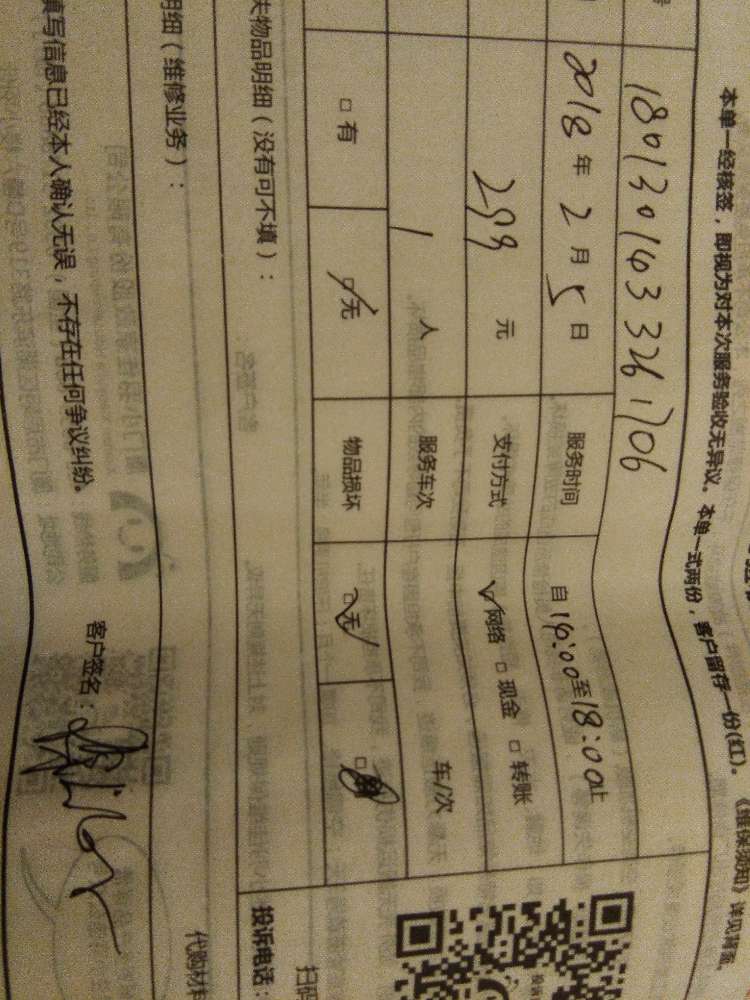 本单一经核签，即视为对本次服务验收无异议。本单一式两份，客户留存一份(红)。《维保须知》详见背面。
2018年2月5日 服务时间 自14:00至18:00止
299元 支付方式 网络 □ 现金 □ 转账
1人 服务车次 车/次
□ 有 □ 无 物品损坏 □ 无 □
物品明细（没有可不填）：
投诉电话：
扫码
明细（维修业务）：
代购材料
填写信息已经本人确认无误，不存在任何争议纠纷。
客户签名：